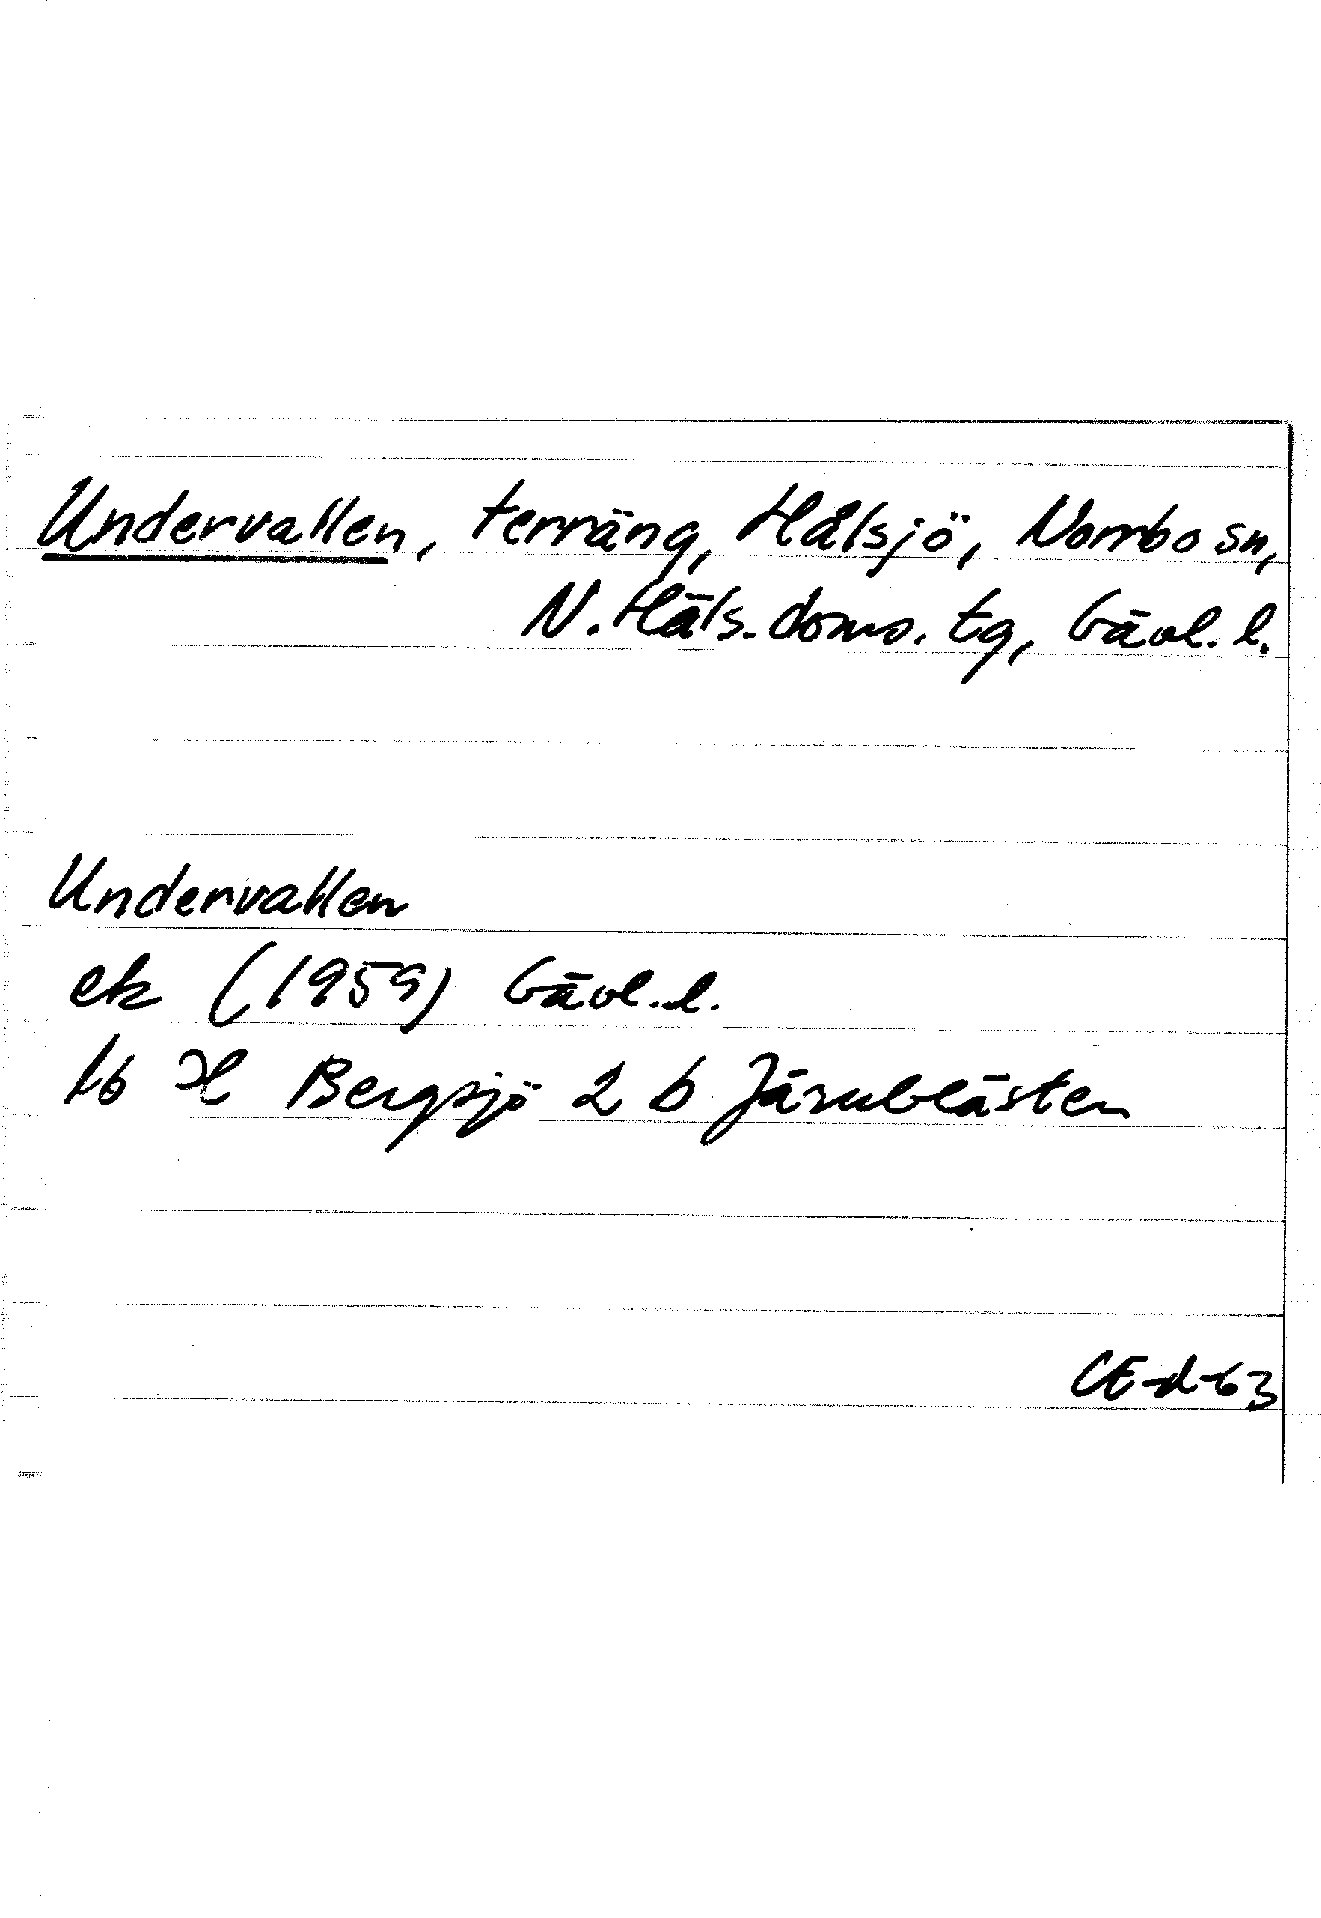 Undervallen, terräng, Hålsjö, Norrbo sn,
N. Häls. doms. tg, Gävl. l.
Undervallen
ek (1959) Gävl. l.
bl H Bergsjö 2 b Järnblästen
CE-d-63